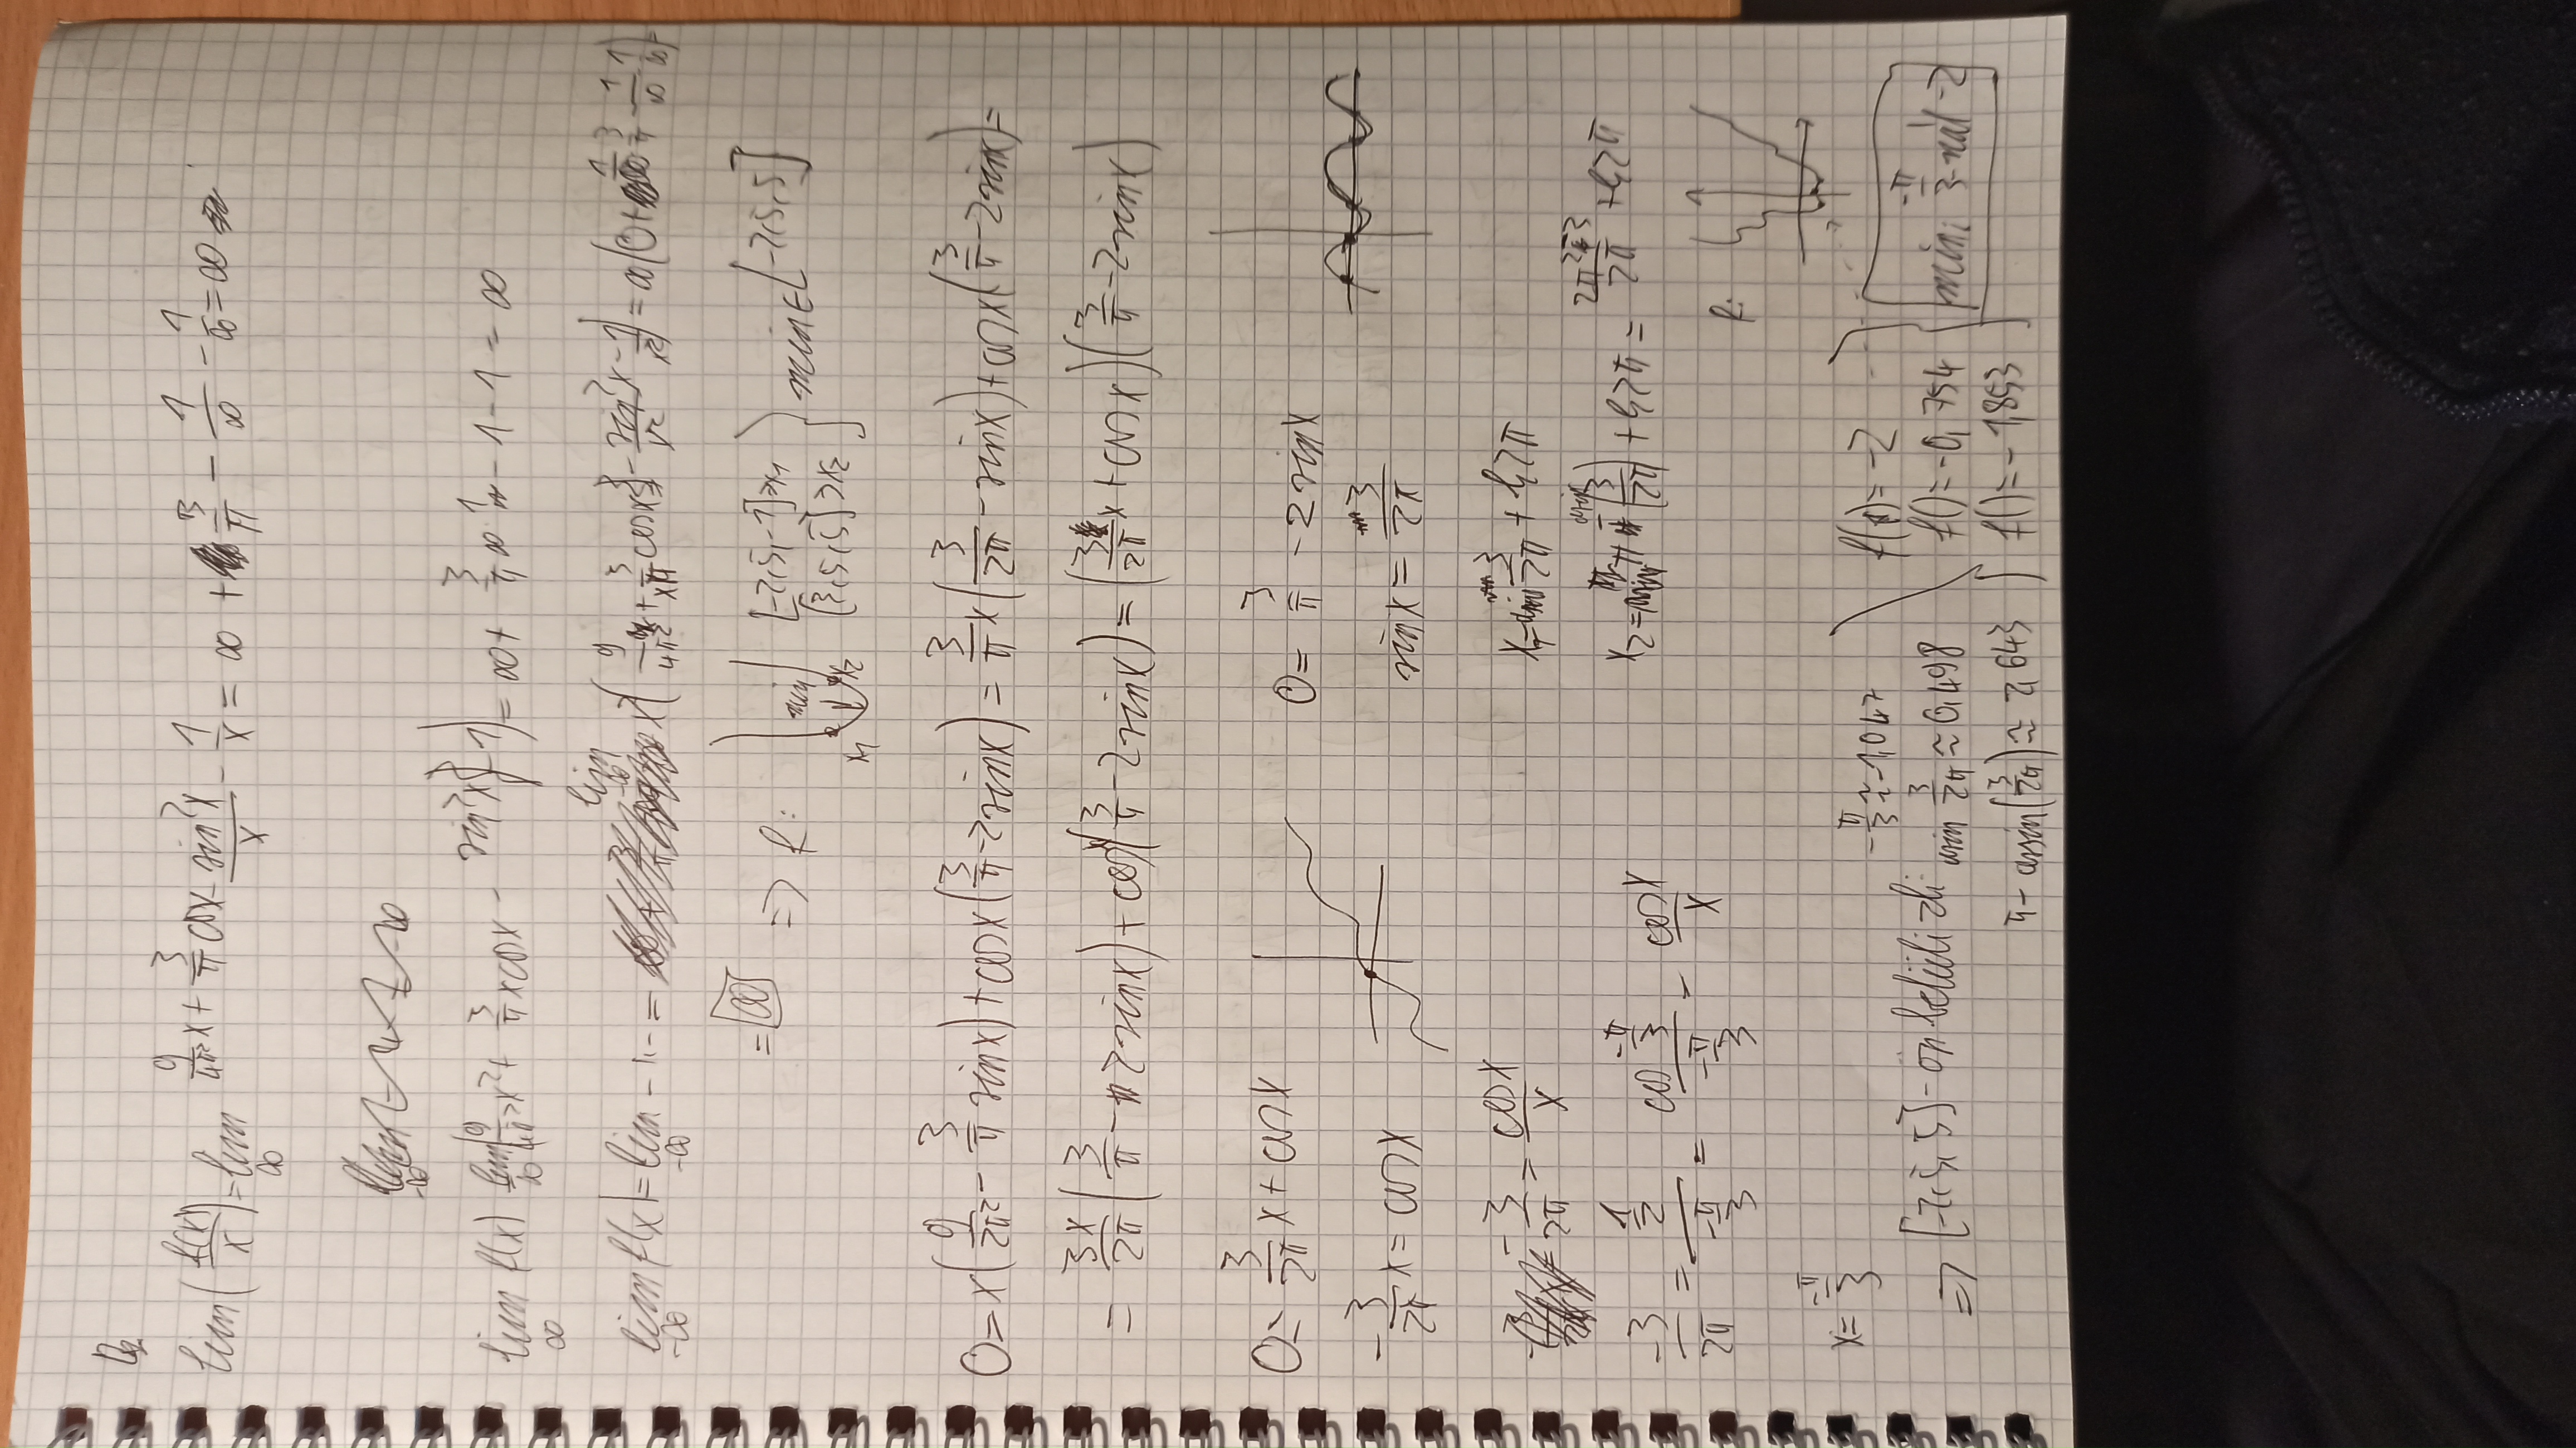 lim(f(x)/x) = lim ∞ 9/4π² x + 3/π cosx - sin²x/x - 1/x = ∞ + 3/π - 1/∞ - 1/∞ = ∞
lim ∞ f(x) lim ∞ (9/4π² x² + 3/π x cosx - sin²x - 1) = ∞ + 3/π ∞ · 1 - 1 - 1 = ∞
lim -∞ f(x) = lim -∞ -"- = lim -∞ x²(9/4π² + 3/xπ cosx - sin²x/x² - 1/x²) = ∞(0 + 1/∞ 3/π - 1/∞ - 1/∞) =
= ∞ => f: min x₁ x₂ [-2,5,-1]∋x₁ [3,5,5]∋x₂ } min∈[-2,5,5]
0 = x(9/2π² - 3/π sinx) + cosx(3/π - 2sinx) = 3/π x(3/2π - sinx) + cosx(3/π - 2sinx) =
= 3x/2π (3/π - 2sinx) + cosx(3/π - 2sinx) = (3/2π x + cosx)(3/π - 2sinx)
0 = 3/2π x + cosx
-3/2π x = cosx
-3/2π = cosx/x
-3/2π = 1/2 / -π/3 = cos -π/3 / -π/3 = cosx/x
x = -π/3
0 = 3/π - 2sinx
sinx = 3/2π
x₁ = 3/2π + k2π
x₂ = π - arcsin(3/2π) + k2π = 2π²-3/2π + k2π
f:
=> [-2,5,5]-ön belüli zh:
-π/3 ≈ -1,047 f( ) = -2
arcsin 3/2π ≈ 0,498 f() = -0,754
π - arcsin(3/2π) ≈ 2,643 f() = -1,853
min: -π/3-nál -2